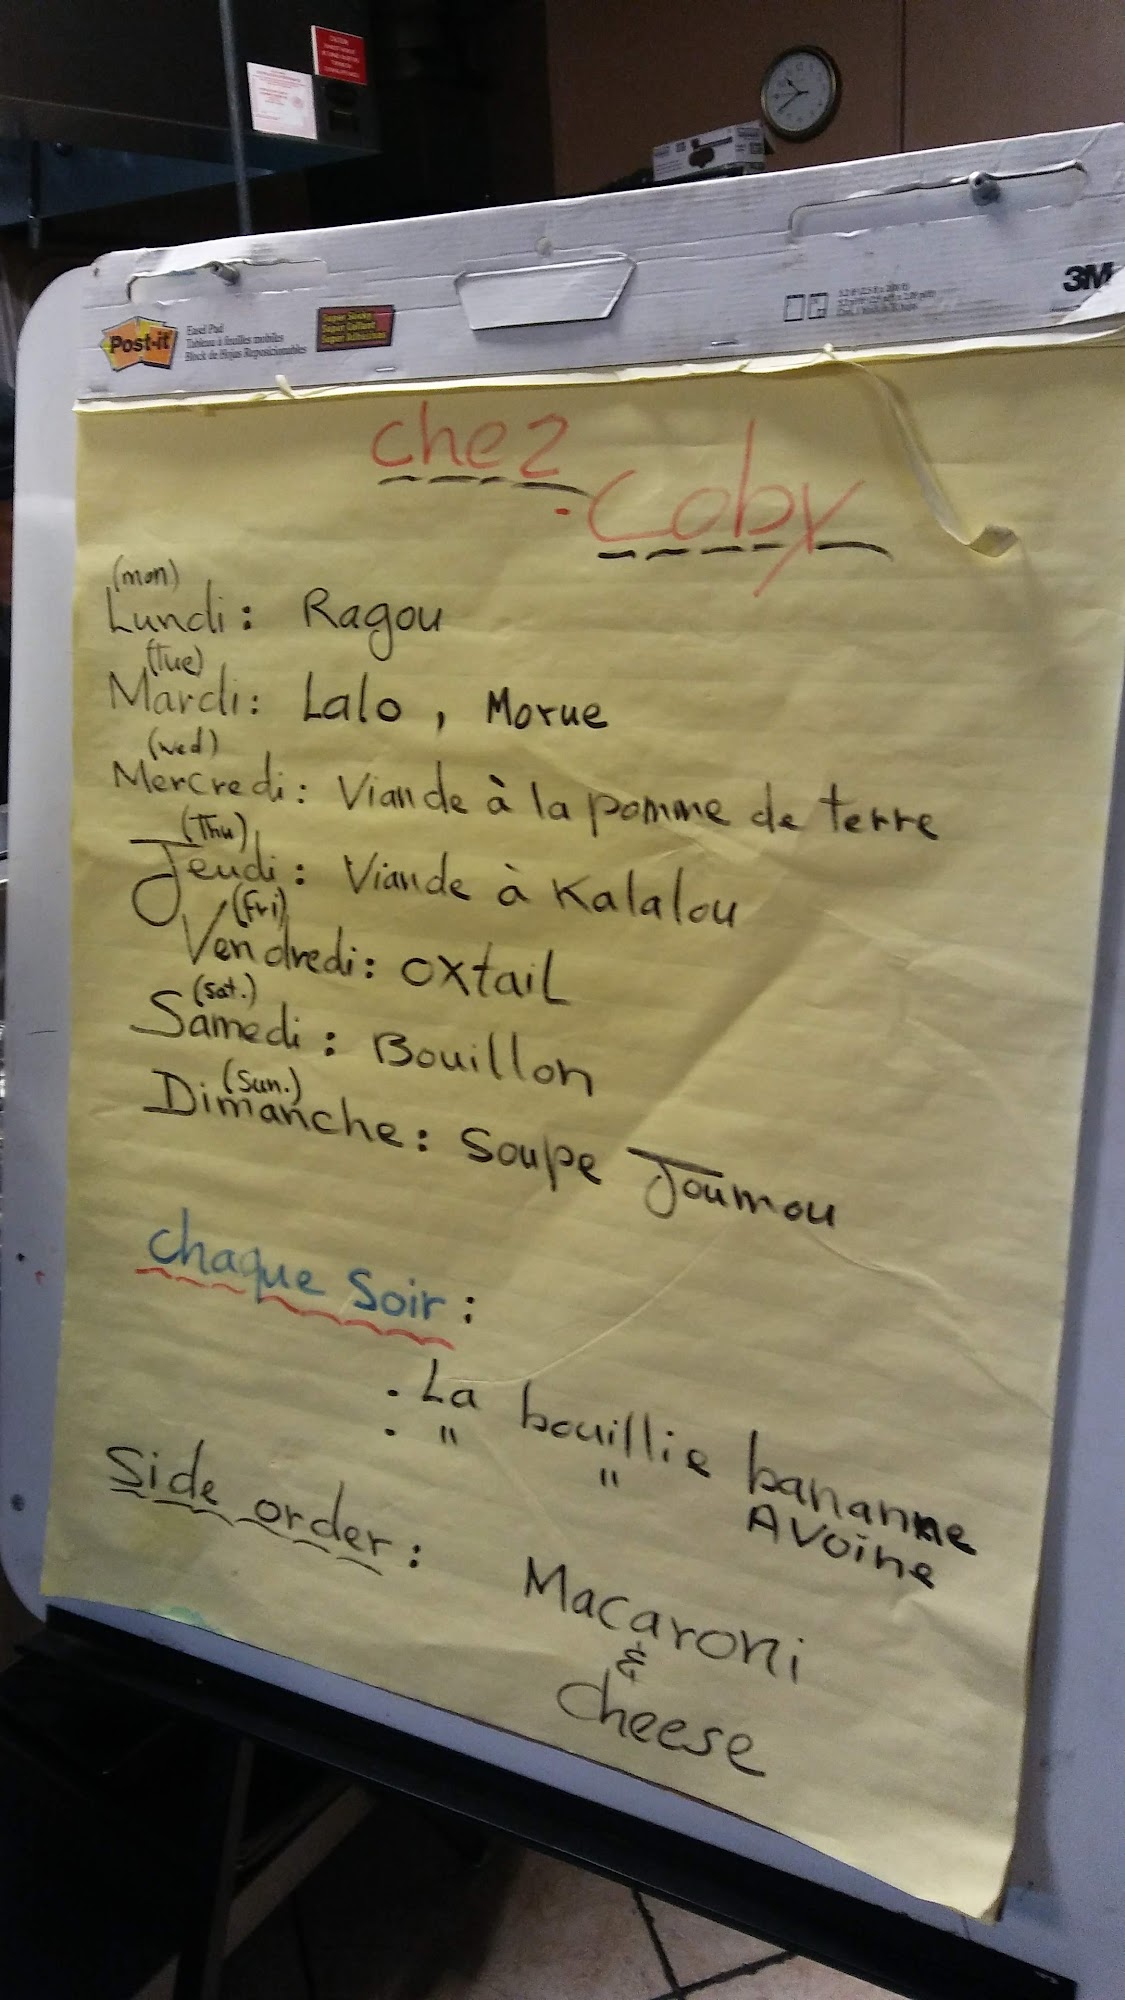 Post-it
Easel Pad
Tableau à feuilles mobiles
Block de Hojas Reposicionables
Super Sticky
3M
Chez
Coby
(mon)
Lundi: Ragou
(Tue)
Mardi: Lalo, Morue
(wed)
Mercredi: Viande à la pomme de terre
(Thu)
Jeudi: Viande à Kalalou
(Fri)
Vendredi: oxtail
(sat.)
Samedi: Bouillon
(Sun.)
Dimanche: Soupe Joumou
Chaque Soir:
. La bouillie bananne
. " " Avoine
Side order: Macaroni
&
Cheese